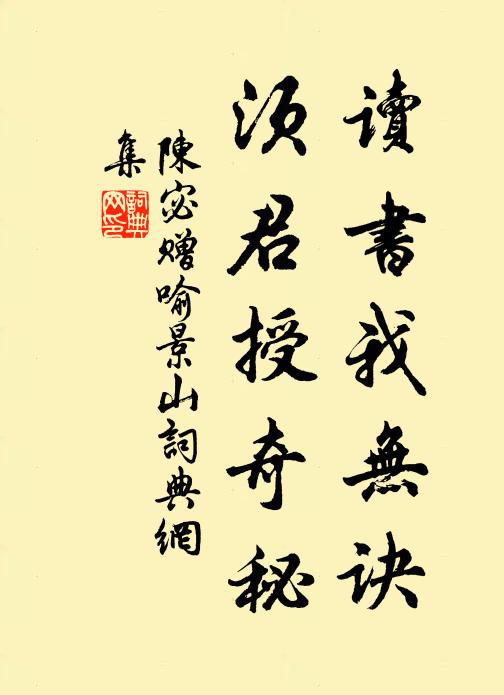 讀書我無訣
須君授奇秘
陳宓贈喻景山詞典網
集
詞典
网印